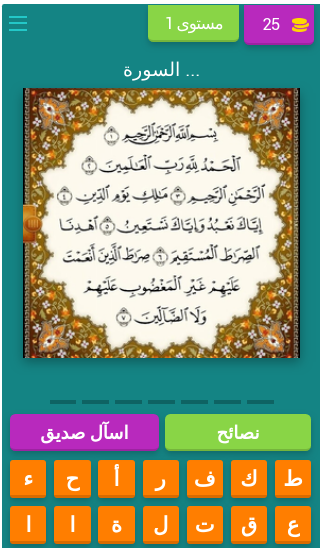 مستوى 1
25
السورة ...
بِسْمِ اللَّهِ الرَّحْمَٰنِ الرَّحِيمِ ١
الْحَمْدُ لِلَّهِ رَبِّ الْعَالَمِينَ ٢
الرَّحْمَٰنِ الرَّحِيمِ ٣ مَالِكِ يَوْمِ الدِّينِ ٤
إِيَّاكَ نَعْبُدُ وَإِيَّاكَ نَسْتَعِينُ ٥ اهْدِنَا
الصِّرَاطَ الْمُسْتَقِيمَ ٦ صِرَاطَ الَّذِينَ أَنْعَمْتَ
عَلَيْهِمْ غَيْرِ الْمَغْضُوبِ عَلَيْهِمْ
وَلَا الضَّالِّينَ ٧
نصائح
اسأل صديق
ط ك ف ر أ ح ء
ع ق ت ل ة ا ا